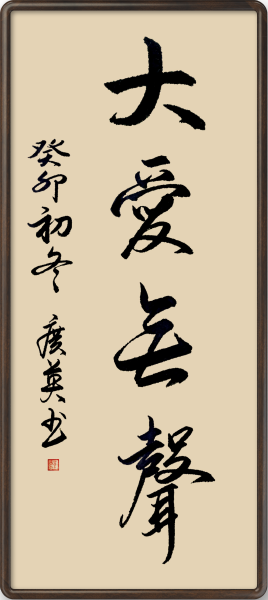 大愛無聲
癸卯初冬 廣英书